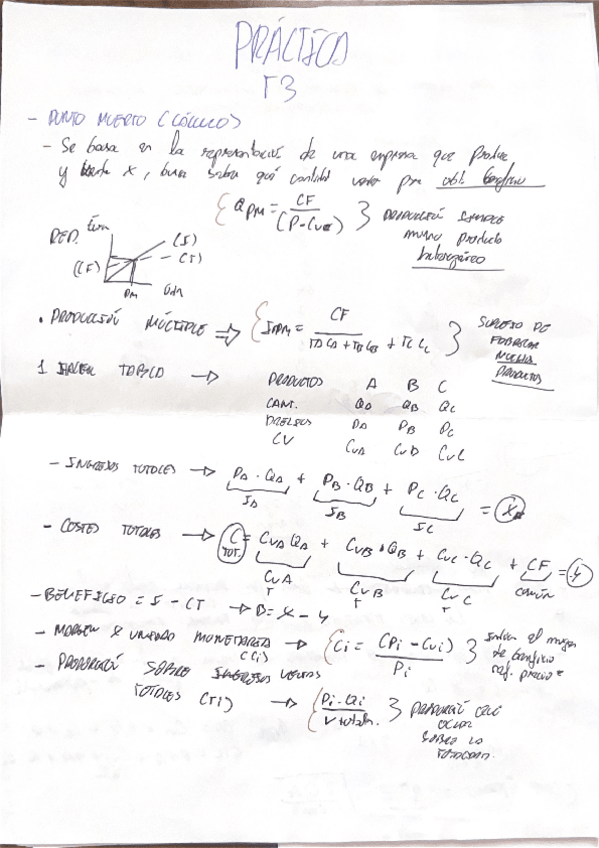 PRÁCTICO
T3
- PUNTO MUERTO (CÁLCULO)
- Se basa en la representación de una empresa que produce
y vende X, busca saber qué cantidad obt. beneficio
{ Q PM = CF / (P - Cva) } PRODUCCIÓN SIMPLE
mismo producto
REP. (I)
(CF) (CT)
PM
• PRODUCCIÓN MÚLTIPLE ⇒ { I PM = CF / TA CA + TB CB + TC CC } SUPUESTO DE
FABRICAR
MUCHOS
PRODUCTOS
1 HACER TABLA → PRODUCTOS A B C
CANT. QA QB QC
PRECIOS PA PB PC
CV CVA CVB CVC
- INGRESOS TOTALES → PA · QA + PB · QB + PC · QC = X
IA IB IC
- COSTES TOTALES → C TOT. = CVA QA + CVB · QB + CVC · QC + CF = Y
CVA T CVB T CVC T COMÚN
- BENEFICIO = I - CT → B = X - Y
- MARGEN X UNIDAD MONETARIA (Ci) → { Ci = (Pi - Cvi) / Pi } Indica el margen
de beneficio
ref. precio
- PROPORCIÓN SOBRE VENTAS
TOTALES (Ti) → { Pi · Qi / V totales. } PROPORCIÓN
SOBRE LA